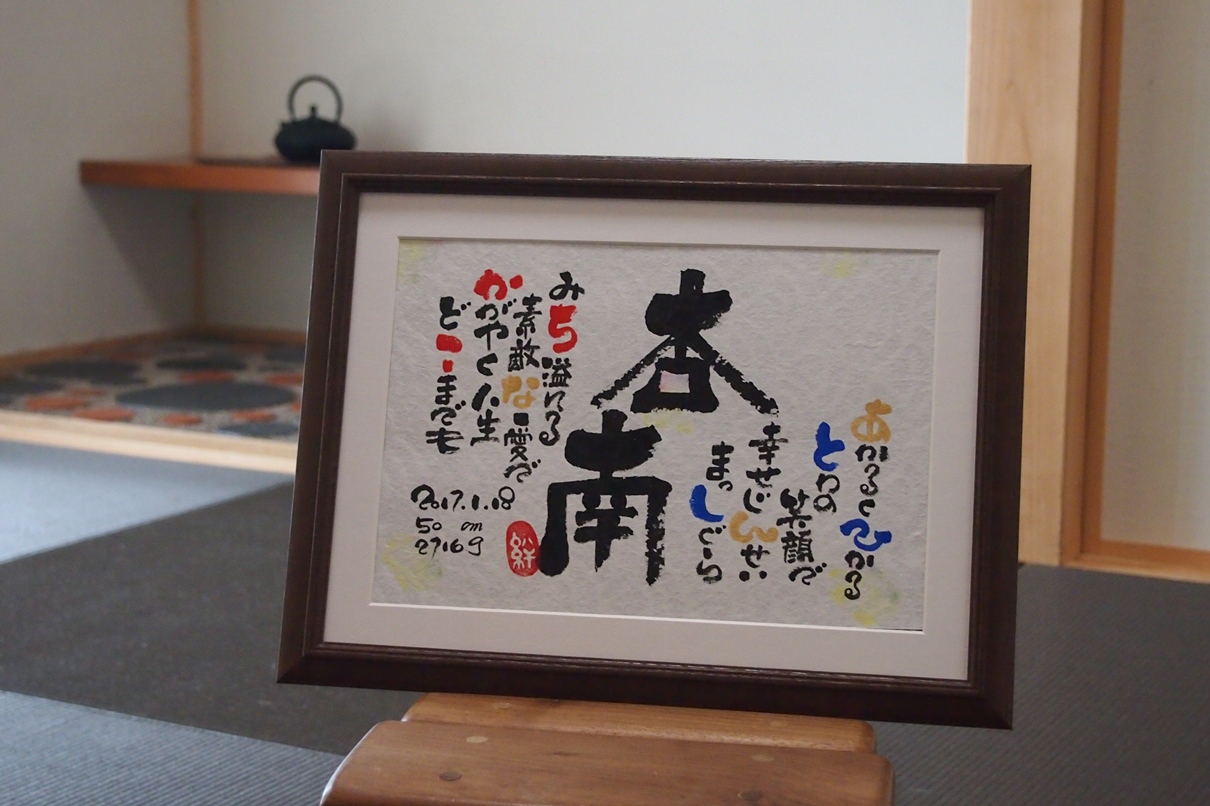 あかるくひかる
とわの
笑顔で
幸せじんせい
まっしぐら
杏南
みち溢れる
素敵な愛で
かがやく人生
どこまでも
2017.1.18
50 cm
2716g
絆